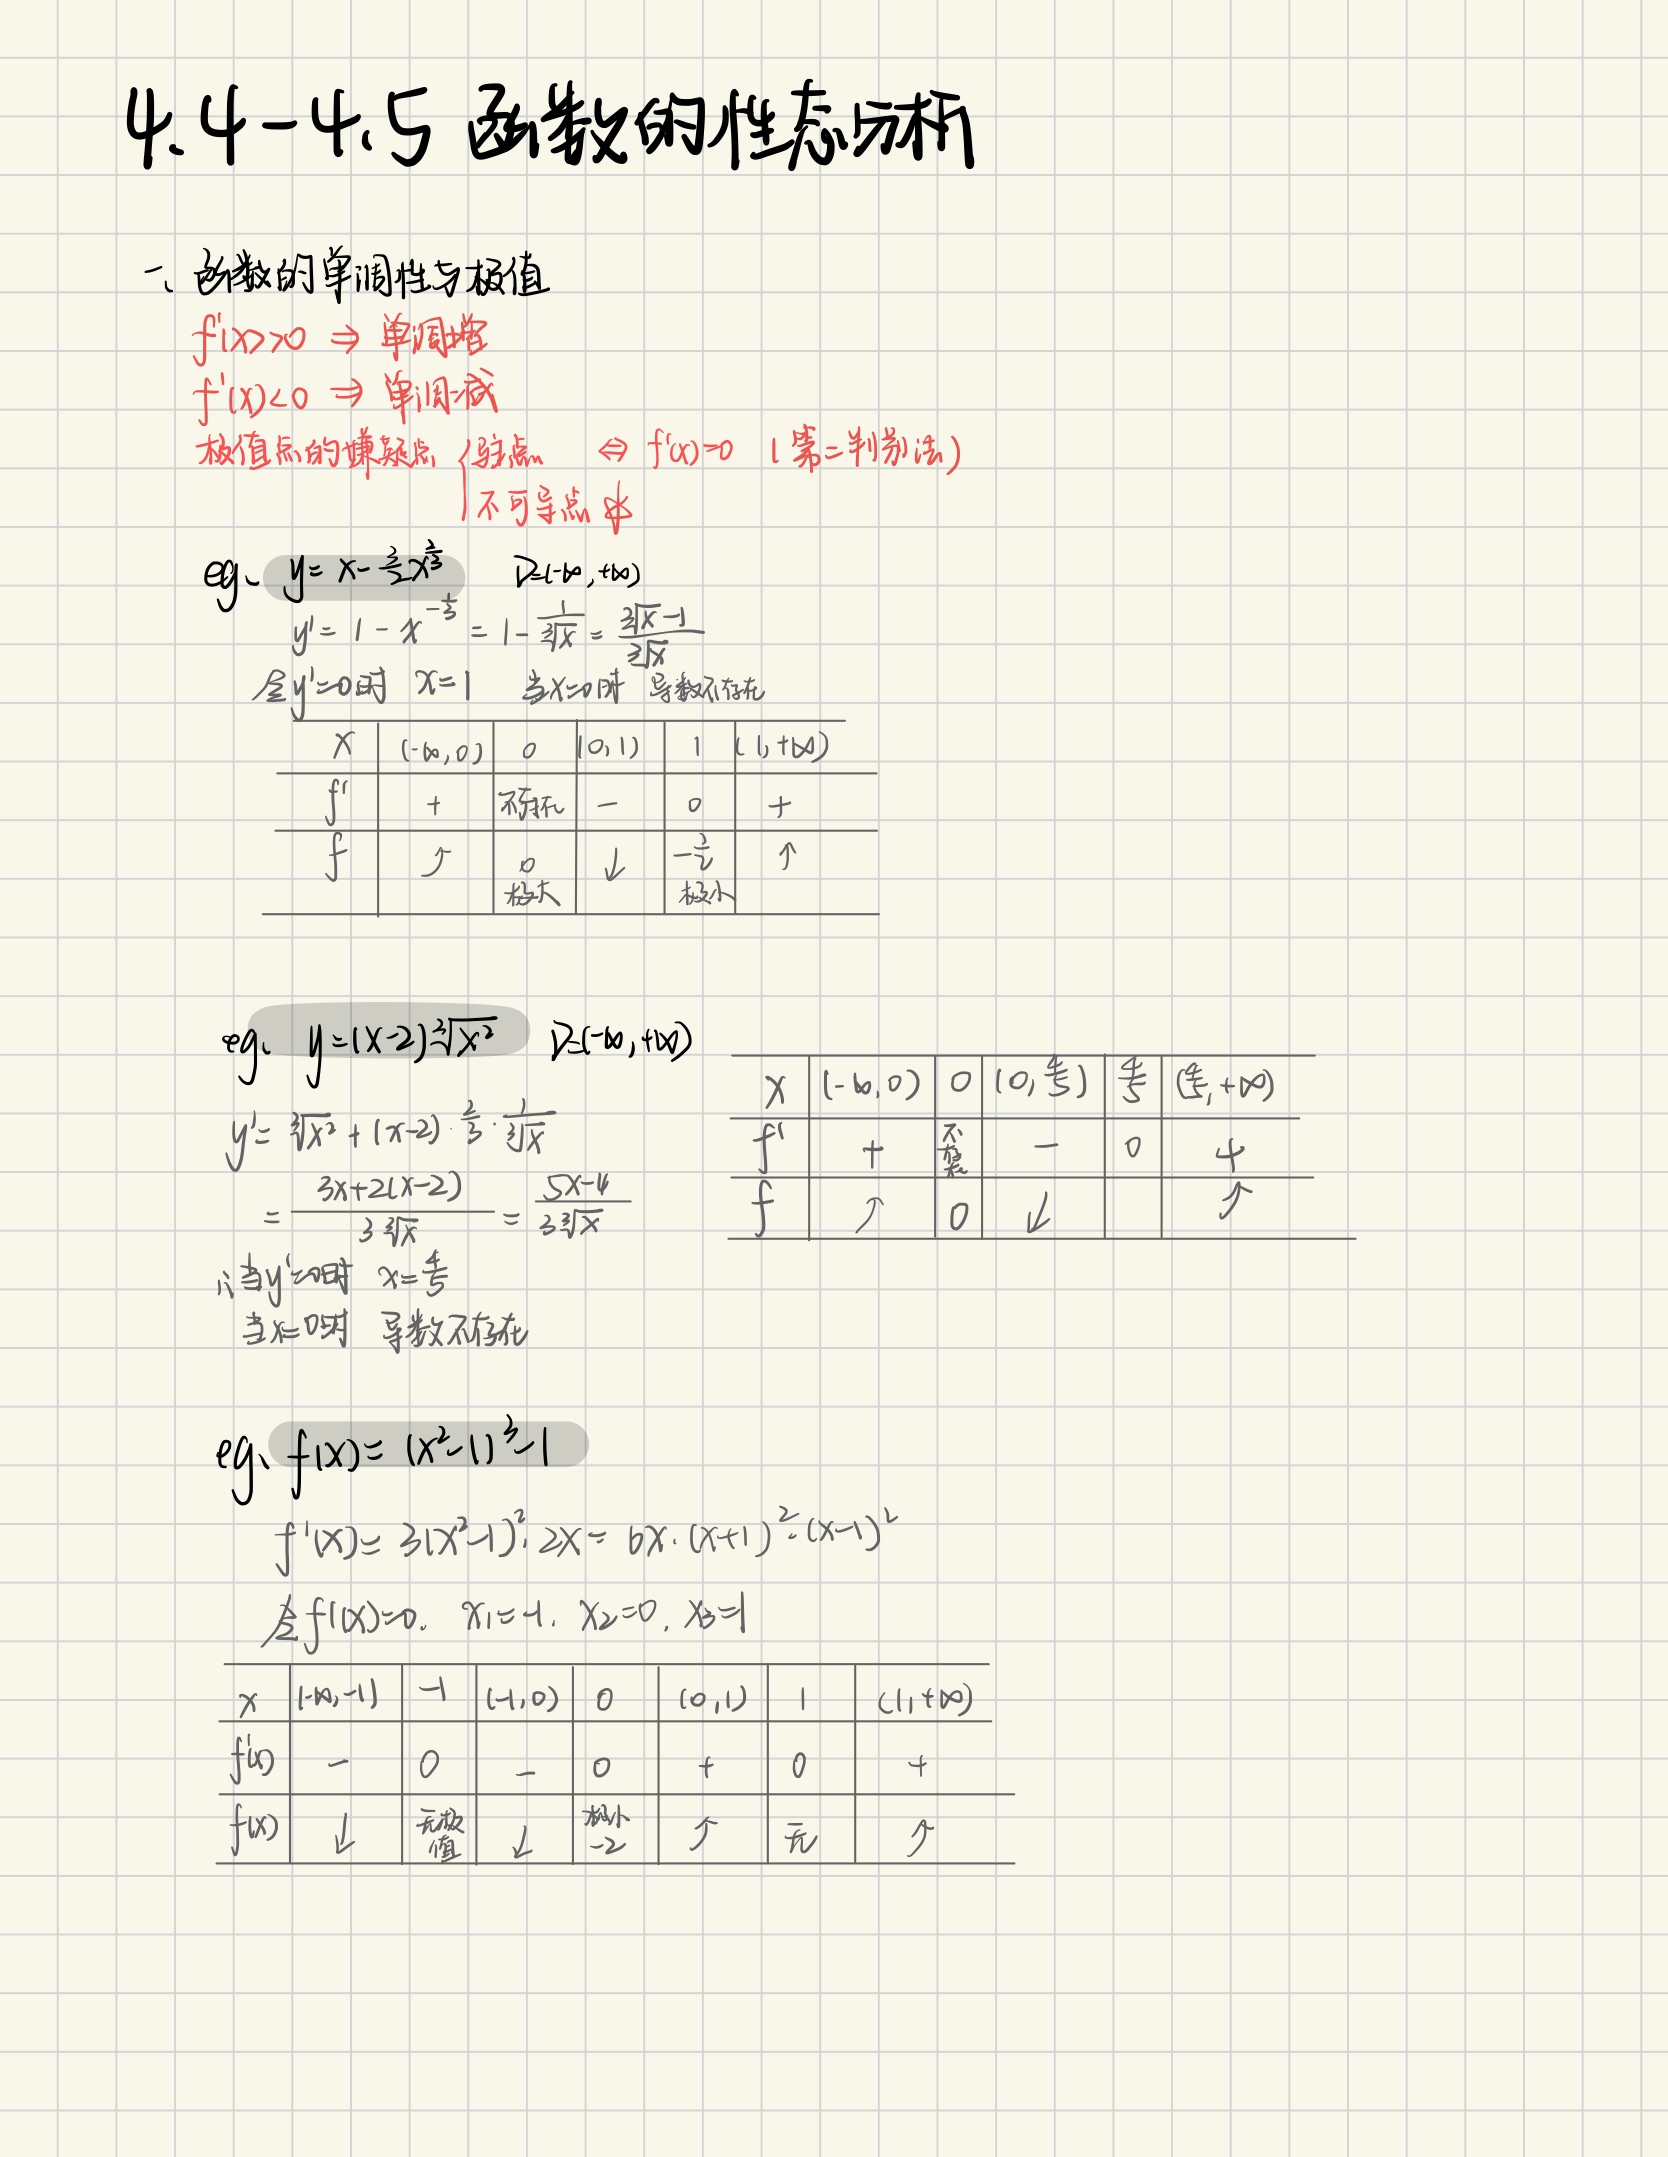 4.4-4.5 函数的性态分析
一、函数的单调性与极值
f'(x)>0 ⇒ 单调增
f'(x)<0 ⇒ 单调减
极值点的嫌疑点 { 驻点 ⇔ f'(x)=0 (第二判别法)
不可导点
eg、 y=x-3/2x^(2/3) D=(-∞,+∞)
y'=1-x^(-1/3)=1-1/∛x=(∛x-1)/∛x
令y'=0时 x=1 当x=0时 导数不存在
x (-∞,0) 0 (0,1) 1 (1,+∞)
f' + 不存在 - 0 +
f ↗ 0 ↓ -1/2 ↑
极大 极小
eg、 y=(x-2)∛x² D=(-∞,+∞)
y'=∛x²+(x-2)·2/3·1/∛x
=(3x+2(x-2))/(3∛x)=(5x-4)/(3∛x)
∴当y'=0时 x=4/5
当x=0时 导数不存在
x (-∞,0) 0 (0,4/5) 4/5 (4/5,+∞)
f' + 不存在 - 0 +
f ↗ 0 ↓ ↗
eg、 f(x)=(x²-1)³-1
f'(x)=3(x²-1)²·2x=6x·(x+1)²·(x-1)²
令f'(x)=0. x₁=-1. x₂=0. x₃=1
x (-∞,-1) -1 (-1,0) 0 (0,1) 1 (1,+∞)
f'(x) - 0 - 0 + 0 +
f(x) ↓ 无极值 ↓ 极小 -2 ↗ 无 ↗